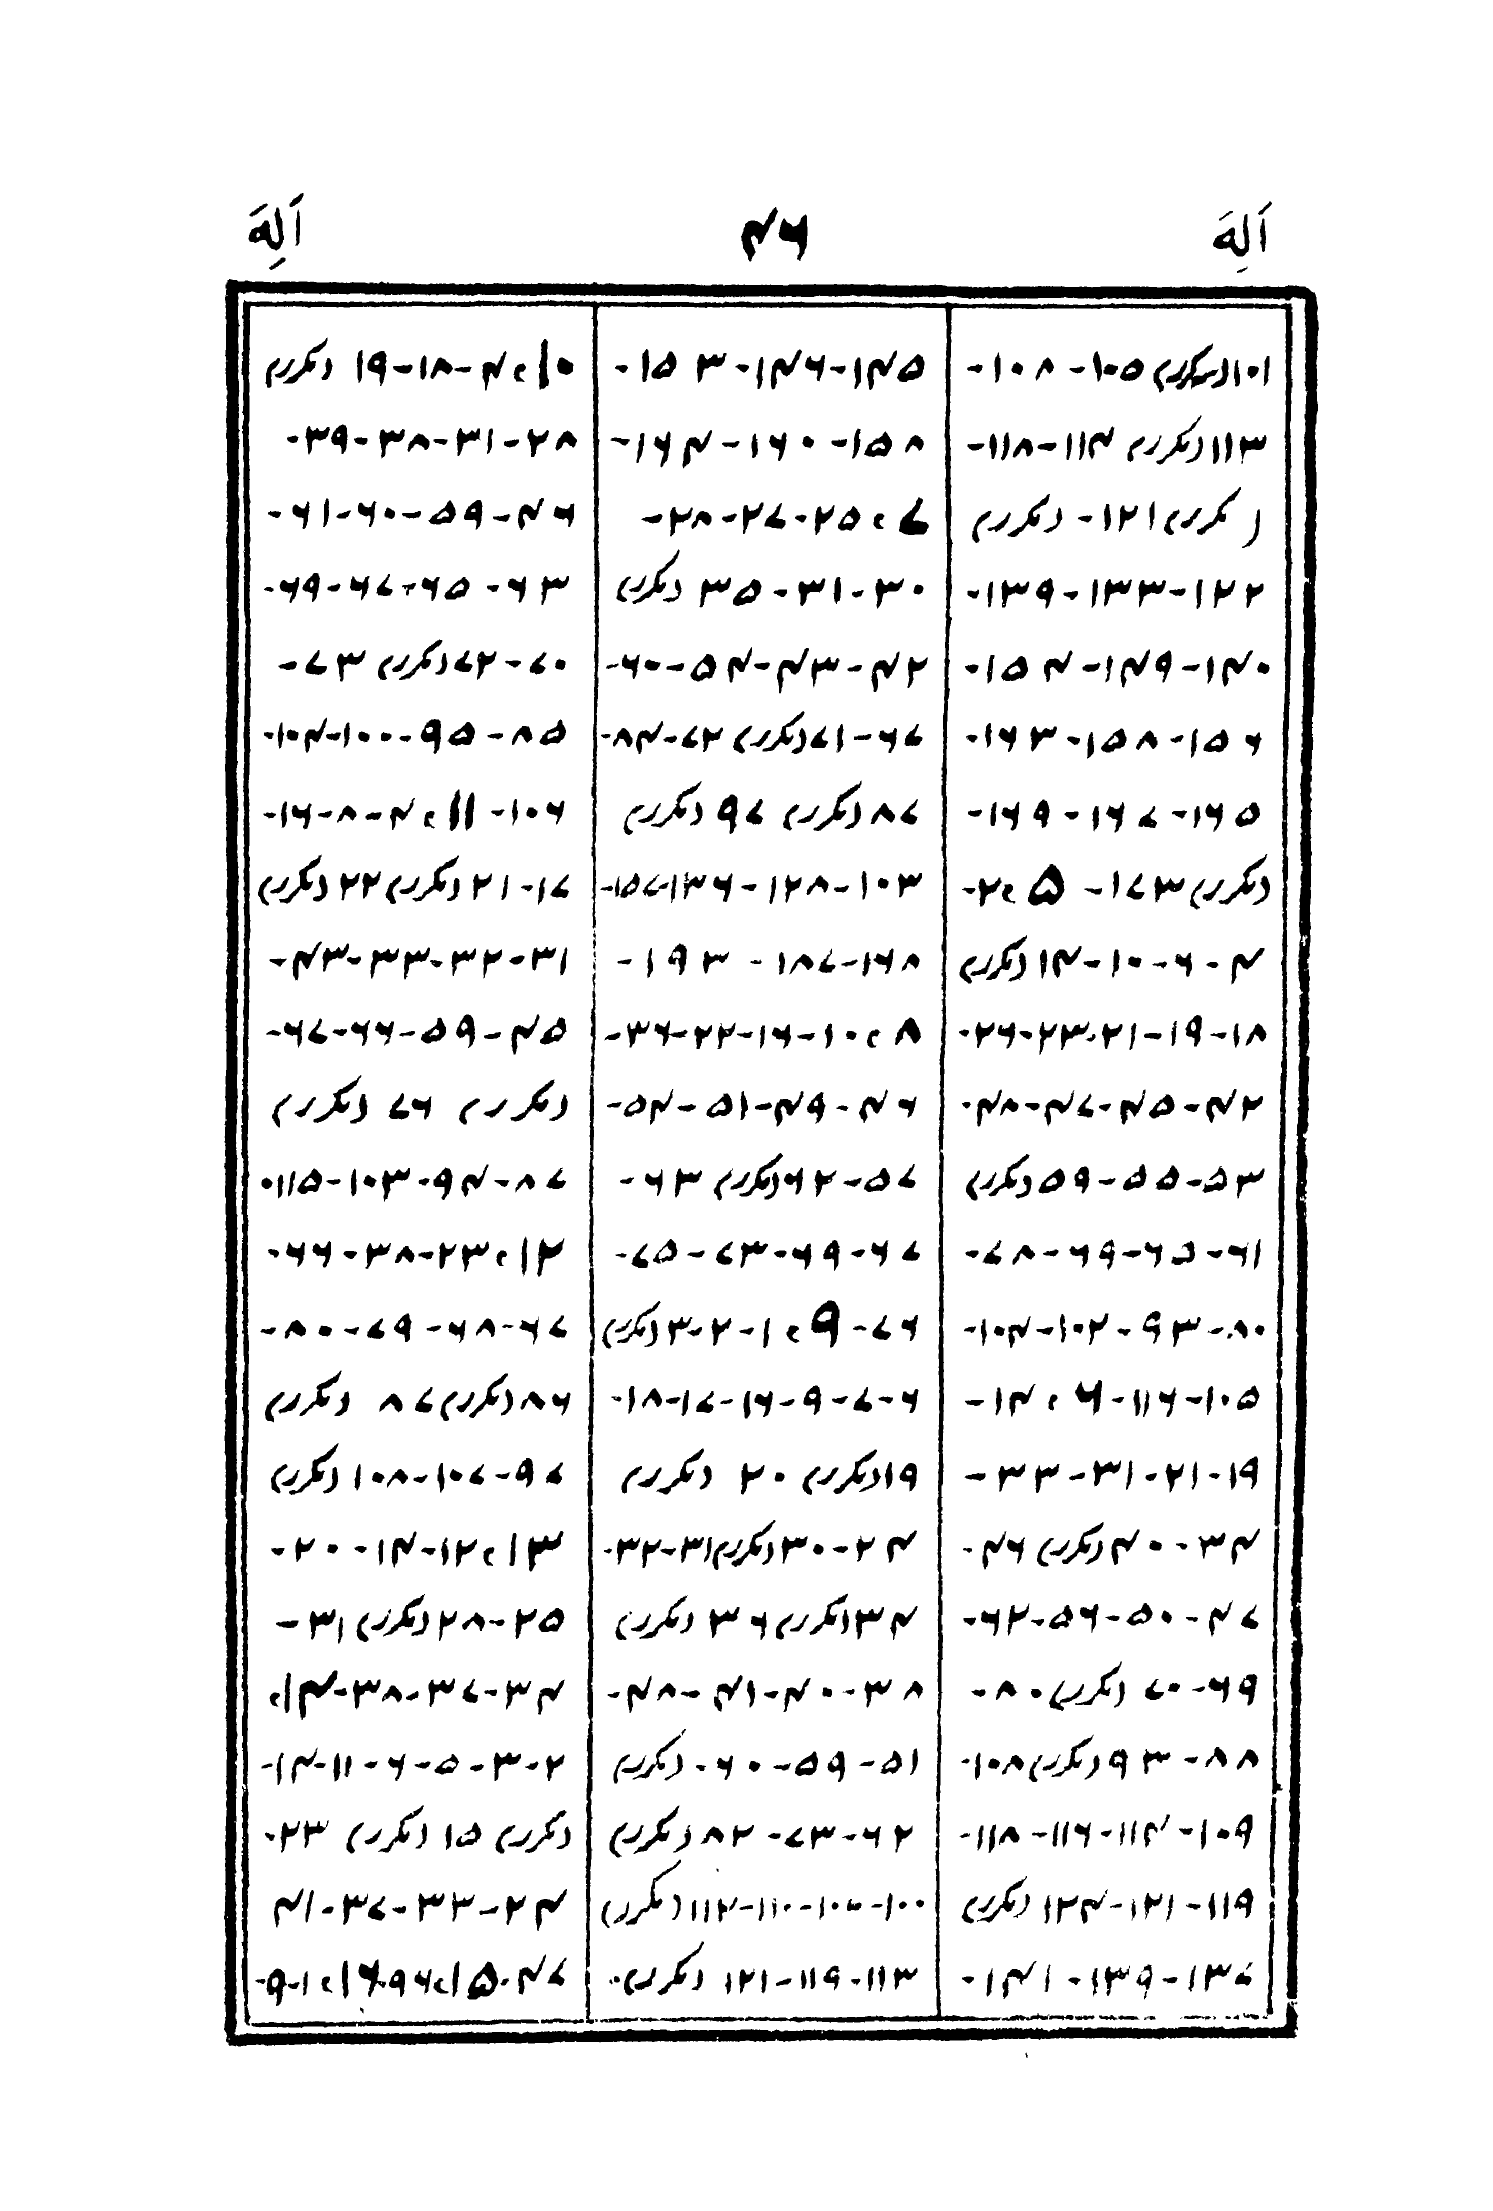 اَلِهَ ۴۶ اَلِهَ
۱۰۱(مکرر) ۱۰۵-۱۰۸-
۱۱۳(مکرر) ۱۱۴-۱۱۸-
(مکرر)۱۲۱- (مکرر)
۱۲۲-۱۳۳-۱۳۹-
۱۴۰-۱۴۹-۱۵۴-
۱۵۶-۱۵۸-۱۶۳-
۱۶۵-۱۶۷-۱۶۹-
(مکرر)۱۷۳- ۵؛ ۲-
۴-۶-۱۰-۱۴(مکرر)
۱۸-۱۹-۲۱-۲۳-۲۶-
۴۲-۴۵-۴۷-۴۸-
۵۳-۵۵-۵۹(مکرر)
۶۱-۶۵-۶۹-۷۸-
۸۰-۹۳-۱۰۲-۱۰۴-
۱۰۵-۱۱۶-۶؛ ۱۴-
۱۹-۲۱-۳۱-۳۳-
۳۴-۴۰(مکرر) ۴۶-
۴۷-۵۰-۵۶-۶۲-
۶۹-۷۰ (مکرر)۸۰-
۸۸-۹۳(مکرر)۱۰۸-
۱۰۹-۱۱۴-۱۱۶-۱۱۸-
۱۱۹-۱۲۱-۱۲۴ (مکرر)
۱۳۷-۱۳۹-۱۴۱-
۱۴۵-۱۴۶-۱۵۳-
۱۵۸-۱۶۰-۱۶۴-
۷؛ ۲۵-۲۷-۲۸-
۳۰-۳۱-۳۵ (مکرر)
۴۲-۴۳-۵۴-۶۰-
۶۷-۷۱(مکرر) ۷۲-۸۴-
۸۷(مکرر) ۹۷ (مکرر)
۱۰۳-۱۲۸-۱۳۶-۱۵۷-
۱۶۸-۱۸۷-۱۹۳-
۸؛ ۱۰-۱۶-۲۲-۳۶-
۴۶-۴۹-۵۱-۵۴-
۵۷-۶۲(مکرر) ۶۳-
۶۷-۶۹-۷۳-۷۵-
۷۶-۹؛ ۱-۲-۳(مکرر)
۶-۷-۹-۱۶-۱۷-۱۸-
۱۹(مکرر) ۲۰ (مکرر)
۲۴-۳۰(مکرر)۳۱-۳۲-
۳۴(مکرر)۳۶ (مکرر)
۳۸-۴۰-۴۱-۴۸-
۵۱-۵۹-۶۰- (مکرر)
۶۲-۷۳-۸۲(مکرر)
۱۰۰-۱۰۵-۱۱۰-۱۱۲(مکرر)
۱۱۳-۱۱۹-۱۲۱ (مکرر)-
۱۰؛ ۴-۱۸-۱۹ (مکرر)
۲۸-۳۱-۳۸-۳۹-
۴۶-۵۹-۶۰-۶۱-
۶۳-۶۵-۶۷-۶۹-
۷۰-۷۲(مکرر) ۷۳-
۸۵-۹۵-۱۰۰-۱۰۴-
۱۰۶-۱۱؛ ۴-۸-۱۶-
۱۷-۲۱(مکرر)۲۲(مکرر)
۳۱-۳۲-۳۳-۳۴-
۵۴-۵۹-۶۶-۶۷-
(مکرر) ۷۶ (مکرر)
۸۷-۹۴-۱۰۳-۱۱۵-
۱۲؛ ۲۳-۳۸-۶۶-
۶۷-۶۸-۷۹-۸۰-
۸۶(مکرر)۸۷ (مکرر)
۹۷-۱۰۷-۱۰۸ (مکرر)
۱۳؛ ۱۲-۱۴-۲۰-
۲۵-۲۸(مکرر) ۳۱-
۳۴-۳۷-۳۸-۱۴؛
۲-۳-۵-۶-۱۱-۱۴-
(مکرر) ۱۵ (مکرر) ۲۳-
۲۴-۳۳-۳۷-۴۱
۴۷-۱۵؛ ۹۶-۱۶؛ ۱-۹-